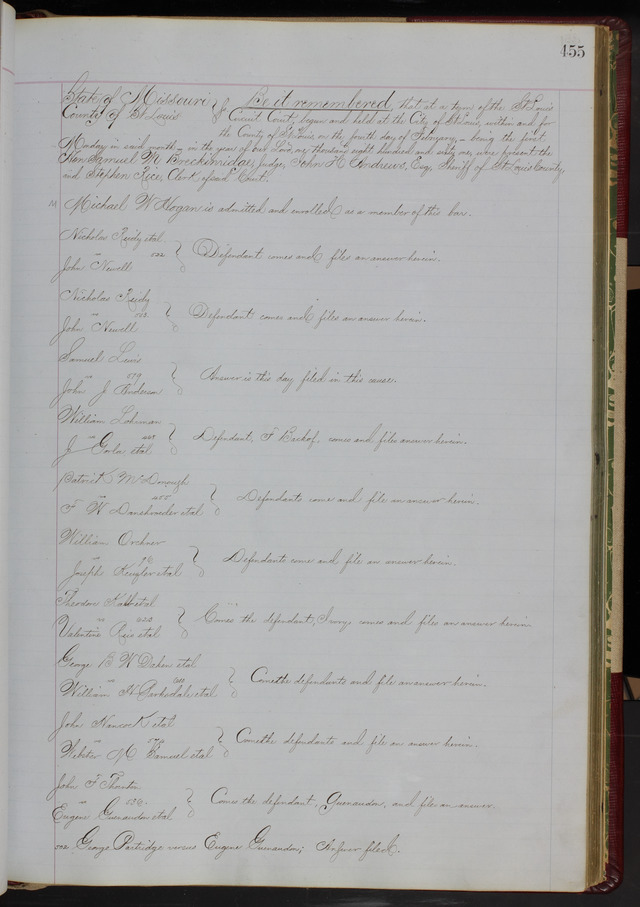 455
State of Missouri } Be it remembered, that at a term of the St Louis
County of St Louis } Circuit Court, begun and held at the City of St Louis, within and for
the County of St Louis, on the fourth day of February, being the first
Monday in said month, in the year of our Lord, one thousand eight hundred and sixty one, were present the
Hon. Samuel M Breckinridge, Judge, John H Andrews, Esq, Sheriff of St Louis County
and Stephen Rice, Clerk of said Court.
Michael W Hogan is admitted and enrolled as a member of this bar.
Nicholas Reidy etal
vs } Defendant comes and files an answer herein.
John Newell
Nicholas Reidy
vs } Defendant comes and files an answer herein.
John Newell
Samuel Lewis
vs } Answer is this day filed in this cause.
John J Anderson
William
vs } Defendant, F comes and files answer herein.
J etal
Patrick McDonough
vs } Defendants come and file an answer herein.
F W etal
William
vs } Defendants come and file an answer herein.
Joseph etal
Theodore etal
vs } Comes the defendant, comes and files an answer herein
Valentine Reis etal
George B W etal
vs } Come the defendants and file an answer herein.
William H Barksdale etal
John Hancock etal
vs } Come the defendants and file an answer herein.
Webster M Samuel etal
John F Thornton
vs } Comes the defendant, Guenaudon, and files an answer.
Eugene Guenaudon etal
George Partridge versus Eugene Guenaudon; Answer filed.